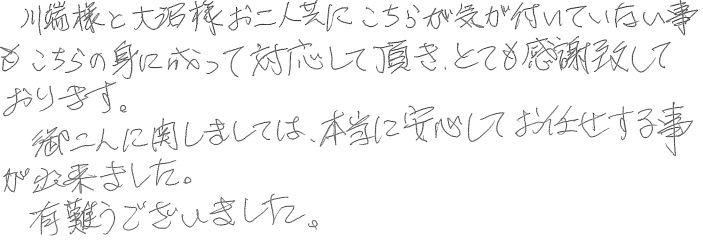 川端様と大沼様お二人共にこちらが気が付いていない事
もこちらの身に成って対応して頂き、とても感謝致して
おります。
御二人に関しましては、本当に安心してお任せする事
が出来ました。
有難うございました。